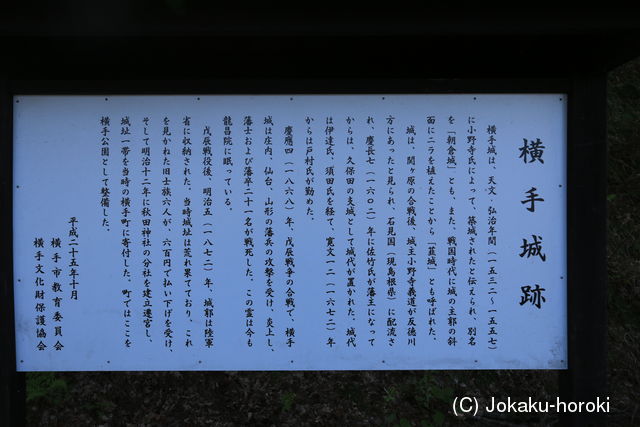 横手城跡
横手城は、天文・弘治年間（一五三二～一五五七）
に小野寺氏によって、築城されたと伝えられ、別名
を「朝倉城」とも、また、戦国時代に城の主郭の斜
面にニラを植えたことから「韮城」とも呼ばれた。
城は、関ヶ原の合戦後、城主小野寺義道が反徳川
方にあったと見られ、石見国（現島根県）に配流さ
れ、慶長七（一六〇二）年に佐竹氏が藩主になって
からは、久保田の支城として城代が置かれた。城代
は伊達氏、須田氏を経て、寛文一二（一六七二）年
からは戸村氏が勤めた。
慶應四（一八六八）年、戊辰戦争の合戦で、横手
城は庄内、仙台、山形の藩兵の攻撃を受け、炎上し、
藩士および藩卒二十一名が戦死した。この霊は今も
龍昌院に眠っている。
戊辰戦役後、明治五（一八七二）年、城郭は陸軍
省に収納された。当時城址は荒れ果てており、これ
を見かねた旧士族六人が、六百円で払い下げを受け、
そして明治十二年に秋田神社の分社を建立遷宮し、
城址一帯を当時の横手町に寄付した。町ではここを
横手公園として整備した。
平成二十五年十月
横手市教育委員会
横手文化財保護協会
(C) Jokaku-horoki